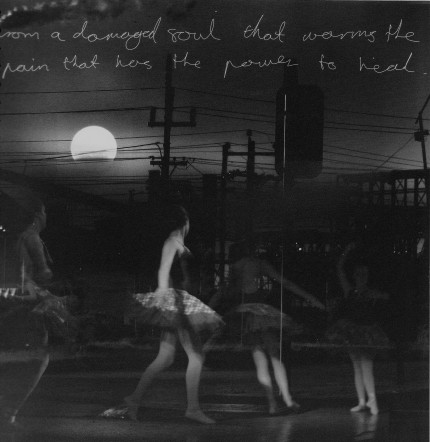 rom a damaged soul that warms the
pain that has the power to heal.